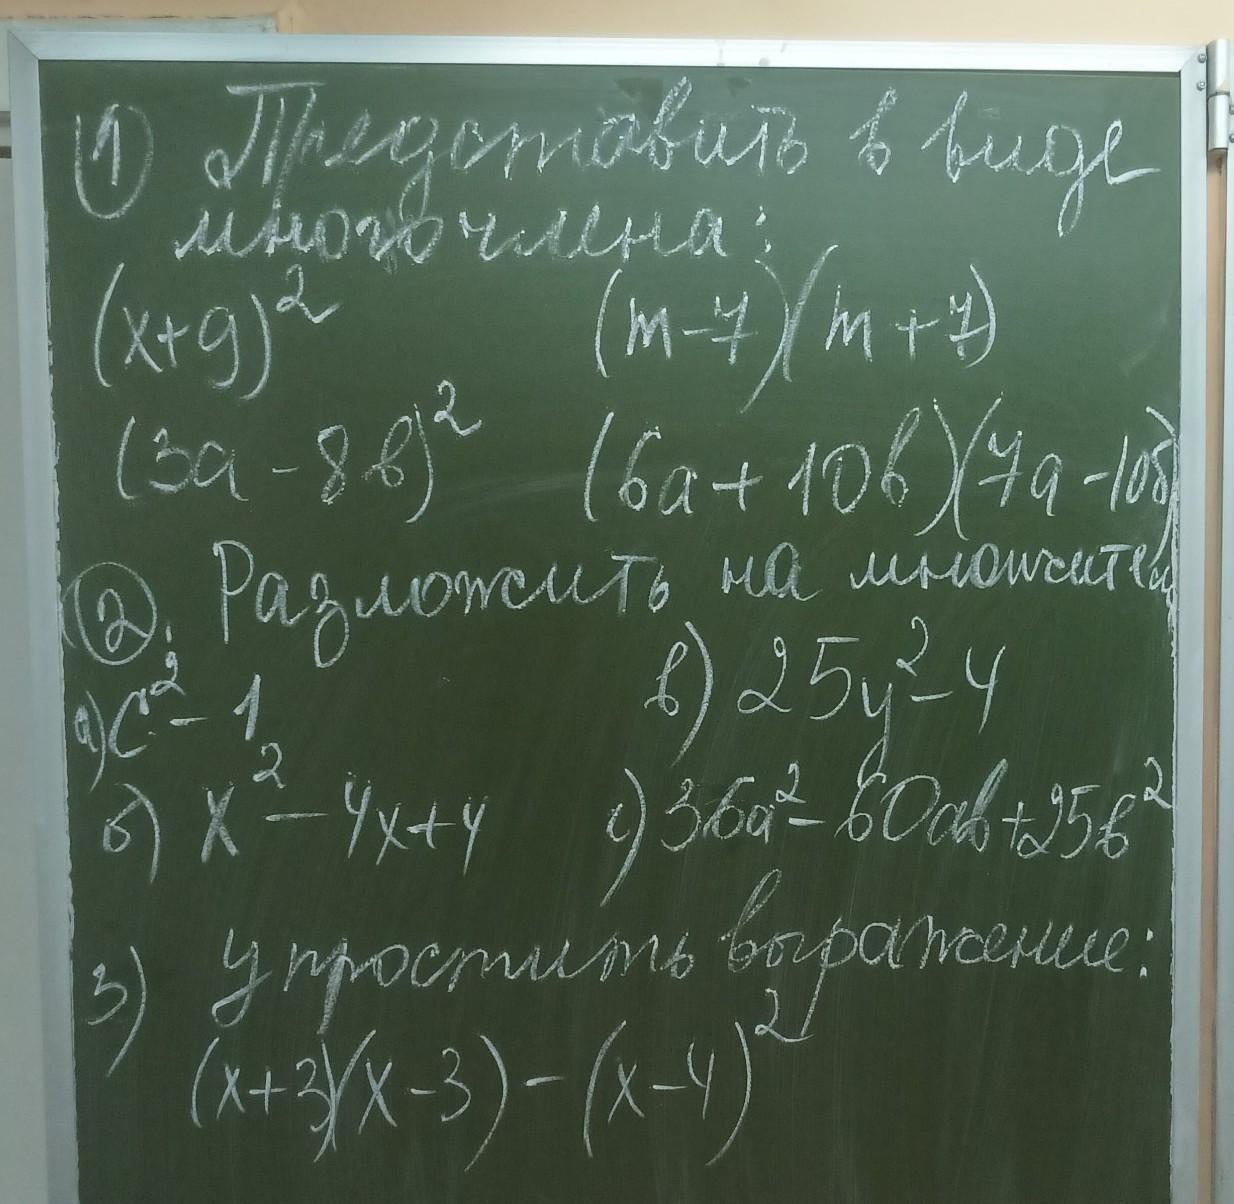 ① Представить в виде
многочлена:
(x+9)² (m-7)(m+7)
(3a-8в)² (6a+10в)(7a-10в)
②. Разложить на множители
а) c²-1 в) 25y²-4
б) x²-4x+4 с) 36a²-60ab+25в²
3) упростить выражение:
(x+3)(x-3)-(x-4)²